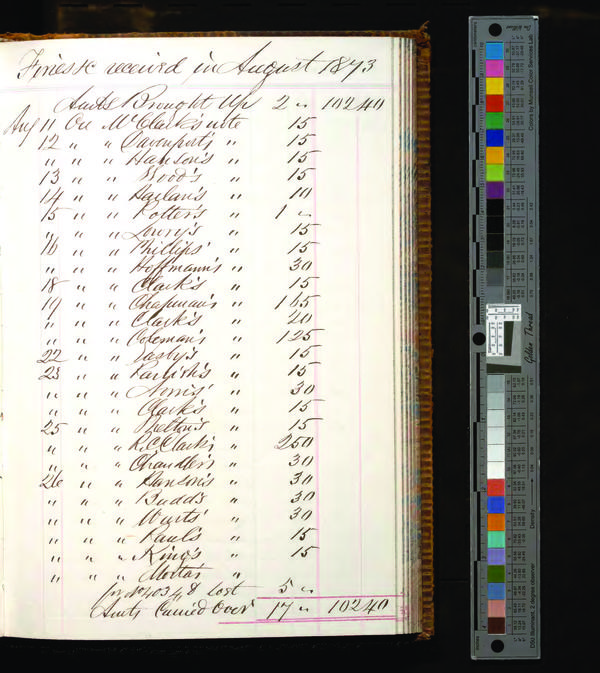 Fines &c received in August 1873
Amts Brought Up 2 " 102 40
Aug 11 On McClark's note 15
12 " " Davenport's " 15
" " " Hanson's " 15
13 " " Wood's " 15
14 " " Harlan's " 10
15 " " Potter's " 1 "
" " " Lowry's " 15
16 " " Phillips' " 15
" " " Hoffmann's " 30
18 " " Clark's " 15
19 " " Chapman's " 1 65
" " " Clark's " 20
" " " Coleman's " 1 25
22 " " " 15
23 " " " 15
" " " Norris' " 30
" " " Clark's " 15
25 " " Shelton's " 15
" " " R.C. Clark's " 2 50
" " " Chandler's " 30
26 " " Ransom's " 30
" " " Budd's " 30
" " " Wurts' " 30
" " " Paul's " 15
" " " King's " 15
" " " "
for No 403 48 Lost 5 "
Amts Carried Over 17 " 102 40
Golden Thread